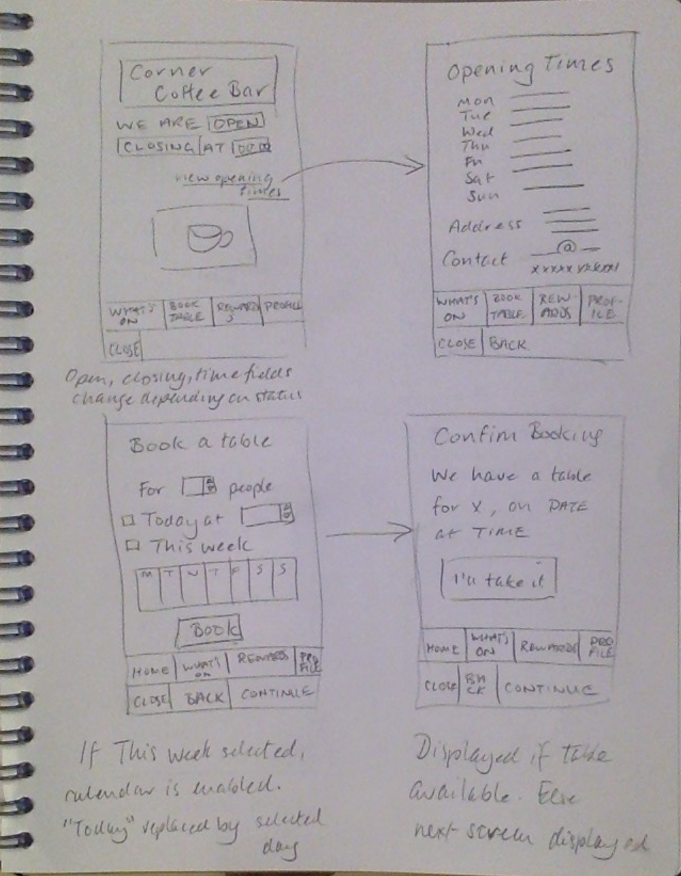 Corner
Coffee Bar
WE ARE OPEN
CLOSING AT
view opening
times
WHAT'S
ON
BOOK
TABLE
REWARD
S
PROFILE
CLOSE
Open, closing, time fields
change depending on status
Opening Times
Mon
Tue
Wed
Thu
Fri
Sat
Sun
Address
Contact @
WHAT'S
ON
BOOK
TABLE
REW-
ARDS
PROF-
ILE
CLOSE BACK
Book a table
For people
Today at
This week
M T W T F S S
Book
HOME
WHAT'S
ON
REWARDS
PRO
FILE
CLOSE BACK CONTINUE
If This week selected,
calendar is enabled.
"Today" replaced by selected
day
Confirm Booking
We have a table
for x, on DATE
at TIME
I'll take it
HOME
WHAT'S
ON
REWARDS
PRO
FILE
CLOSE
BA
CK
CONTINUE
Displayed if table
available. Else
next screen displayed